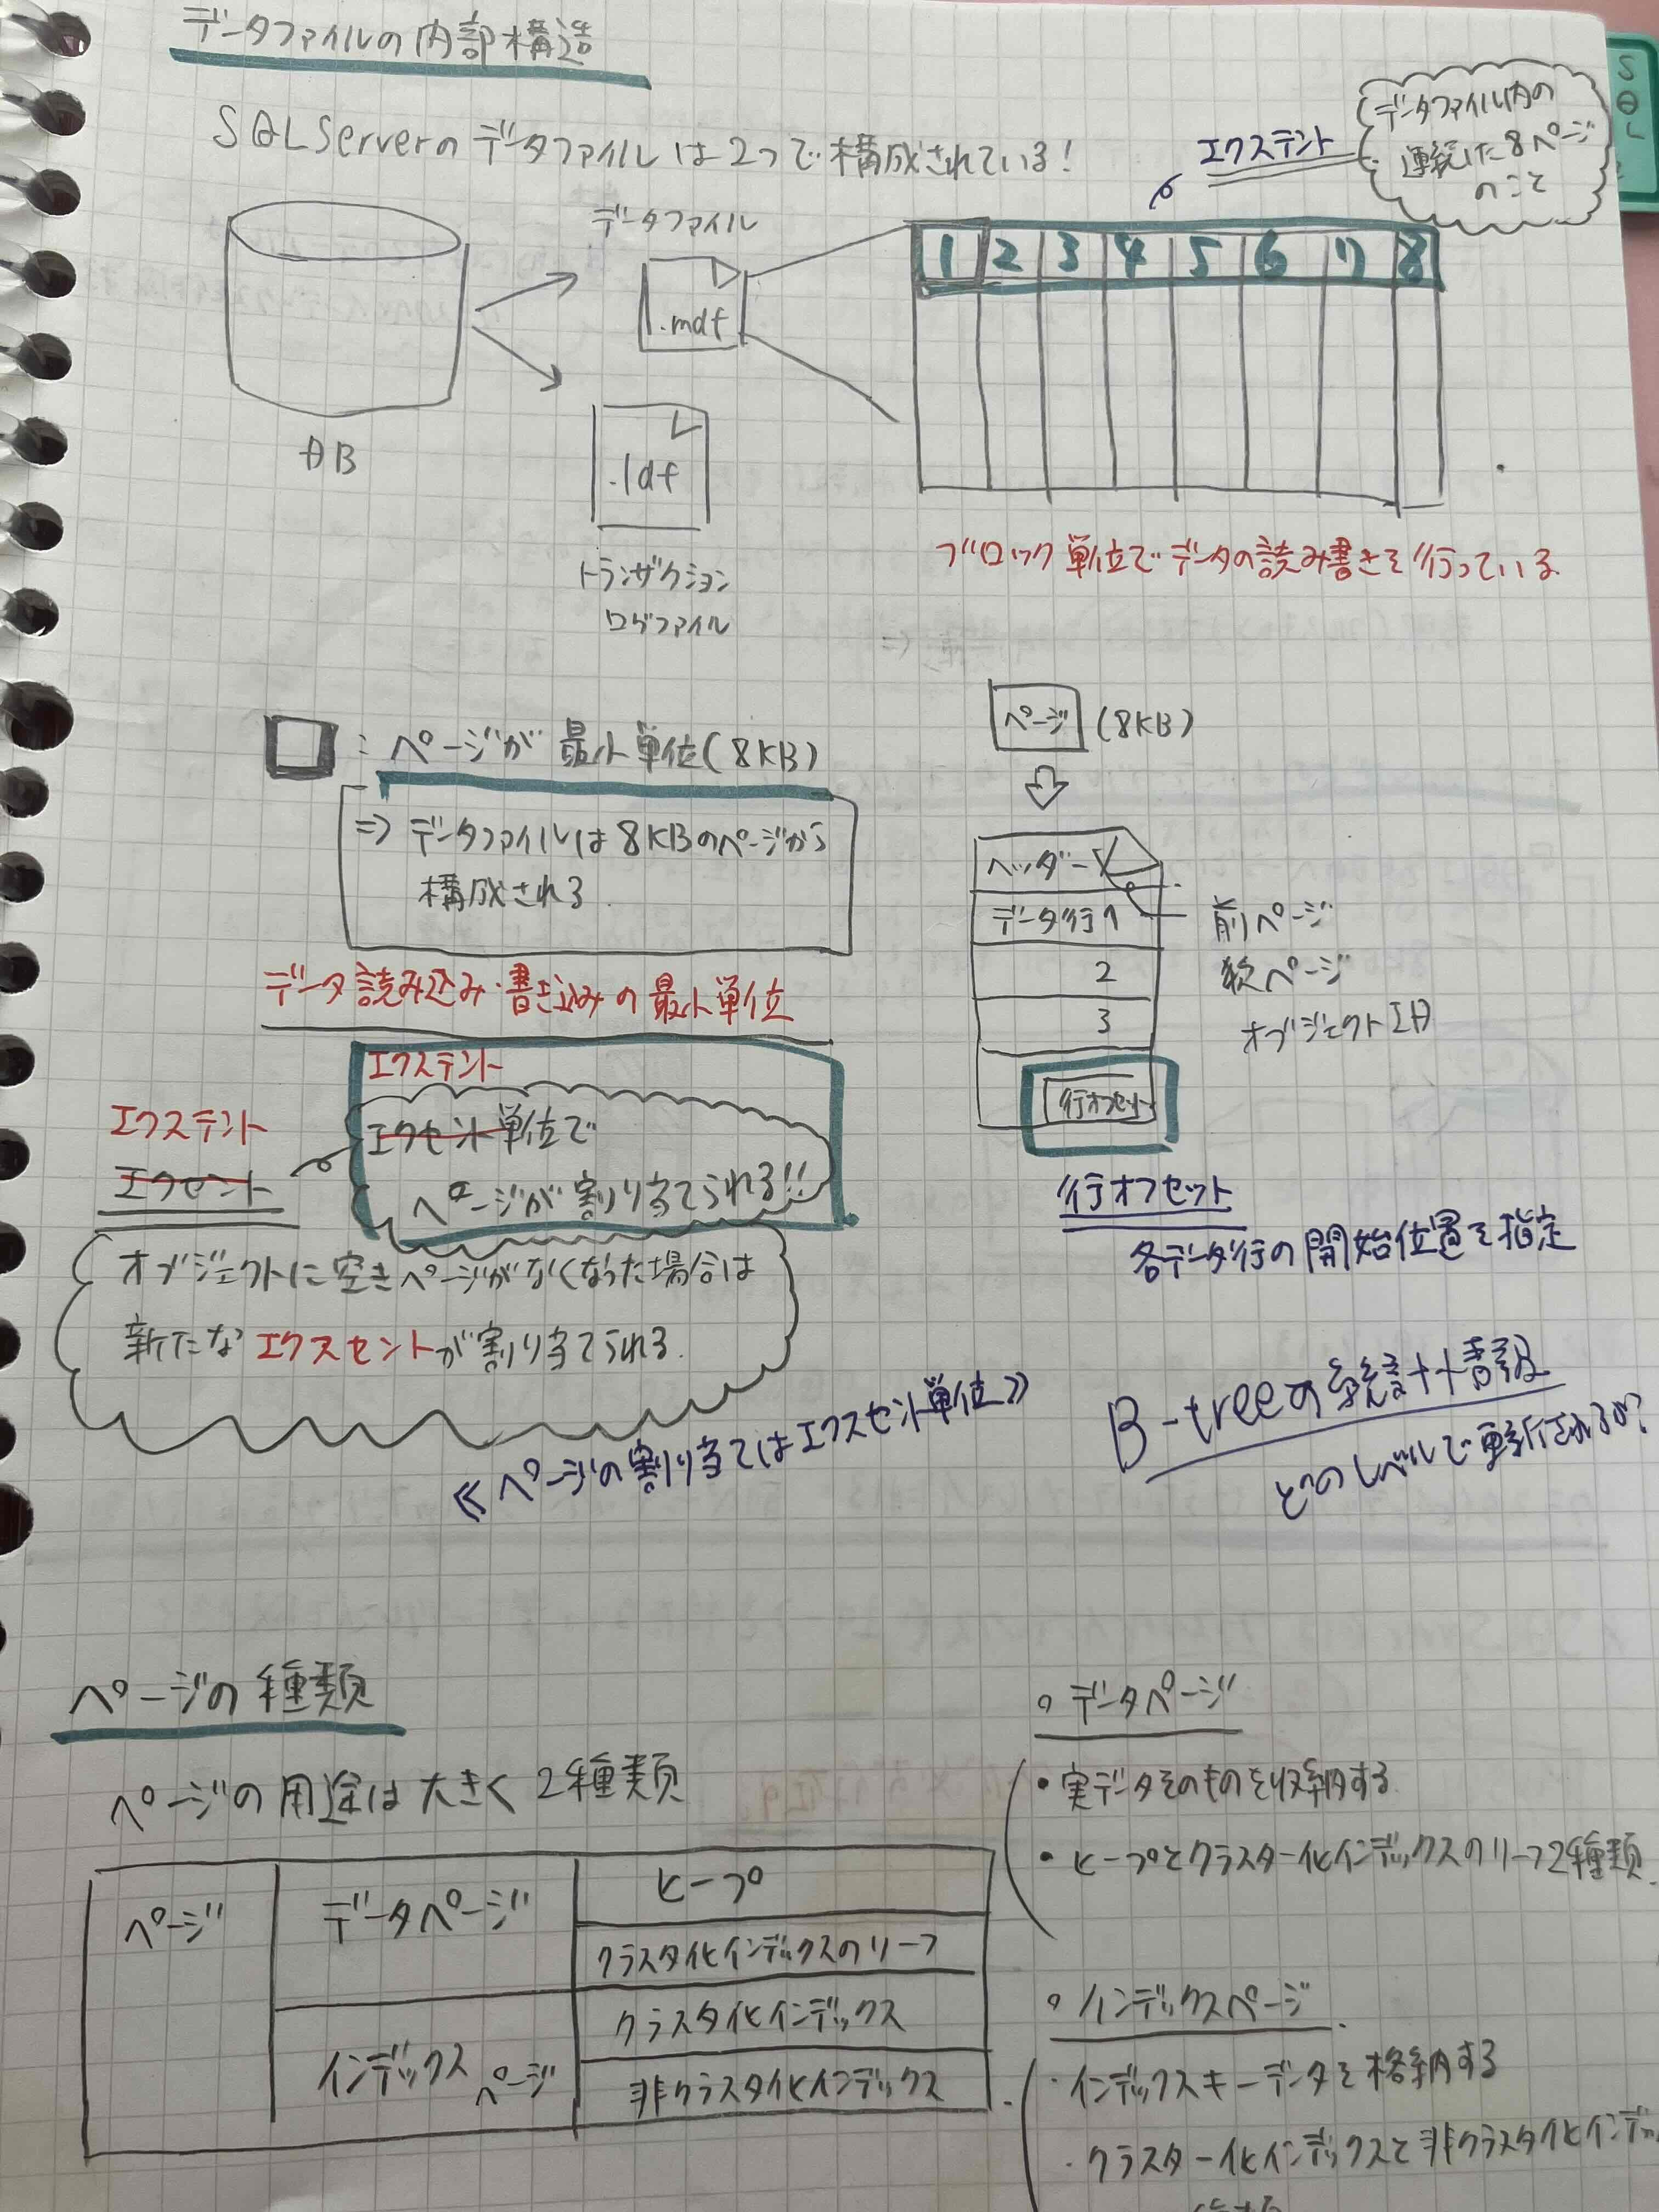 データファイルの内部構造
SQL Serverのデータファイルは2つで構成されている!
エクステント
データファイル内の
連続した8ページ
のこと
SQL
データファイル
.mdf
1 2 3 4 5 6 7 8
DB
.ldf
トランザクション
ログファイル
ブロック単位でデータの読み書きを行っている
：ページが最小単位(8KB)
⇒ データファイルは8KBのページから
構成される
データ読み込み・書き込みの最小単位
エクステント
エクセント単位で
ページが割り当てられる!!
エクステント
エクセント
オブジェクトに空きページがなくなった場合は
新たなエクスセントが割り当てられる.
≪ページの割り当てはエクスセント単位≫
ページ (8KB)
ヘッダー
データ行1
2
3
行オフセット
前ページ
後ページ
オブジェクトID
行オフセット
各データ行の開始位置を指定
B-treeの統計情報
どのレベルで更新されるか?
ページの種類
ページの用途は大きく2種類
ページ
データページ
ヒープ
クラスタ化インデックスのリーフ
インデックスページ
クラスタ化インデックス
非クラスタ化インデックス
。データページ
・実データそのものを収納する
・ヒープとクラスター化インデックスのリーフ2種類.
。インデックスページ
・インデックスキーデータを格納する
・クラスター化インデックスと非クラスタ化インデ